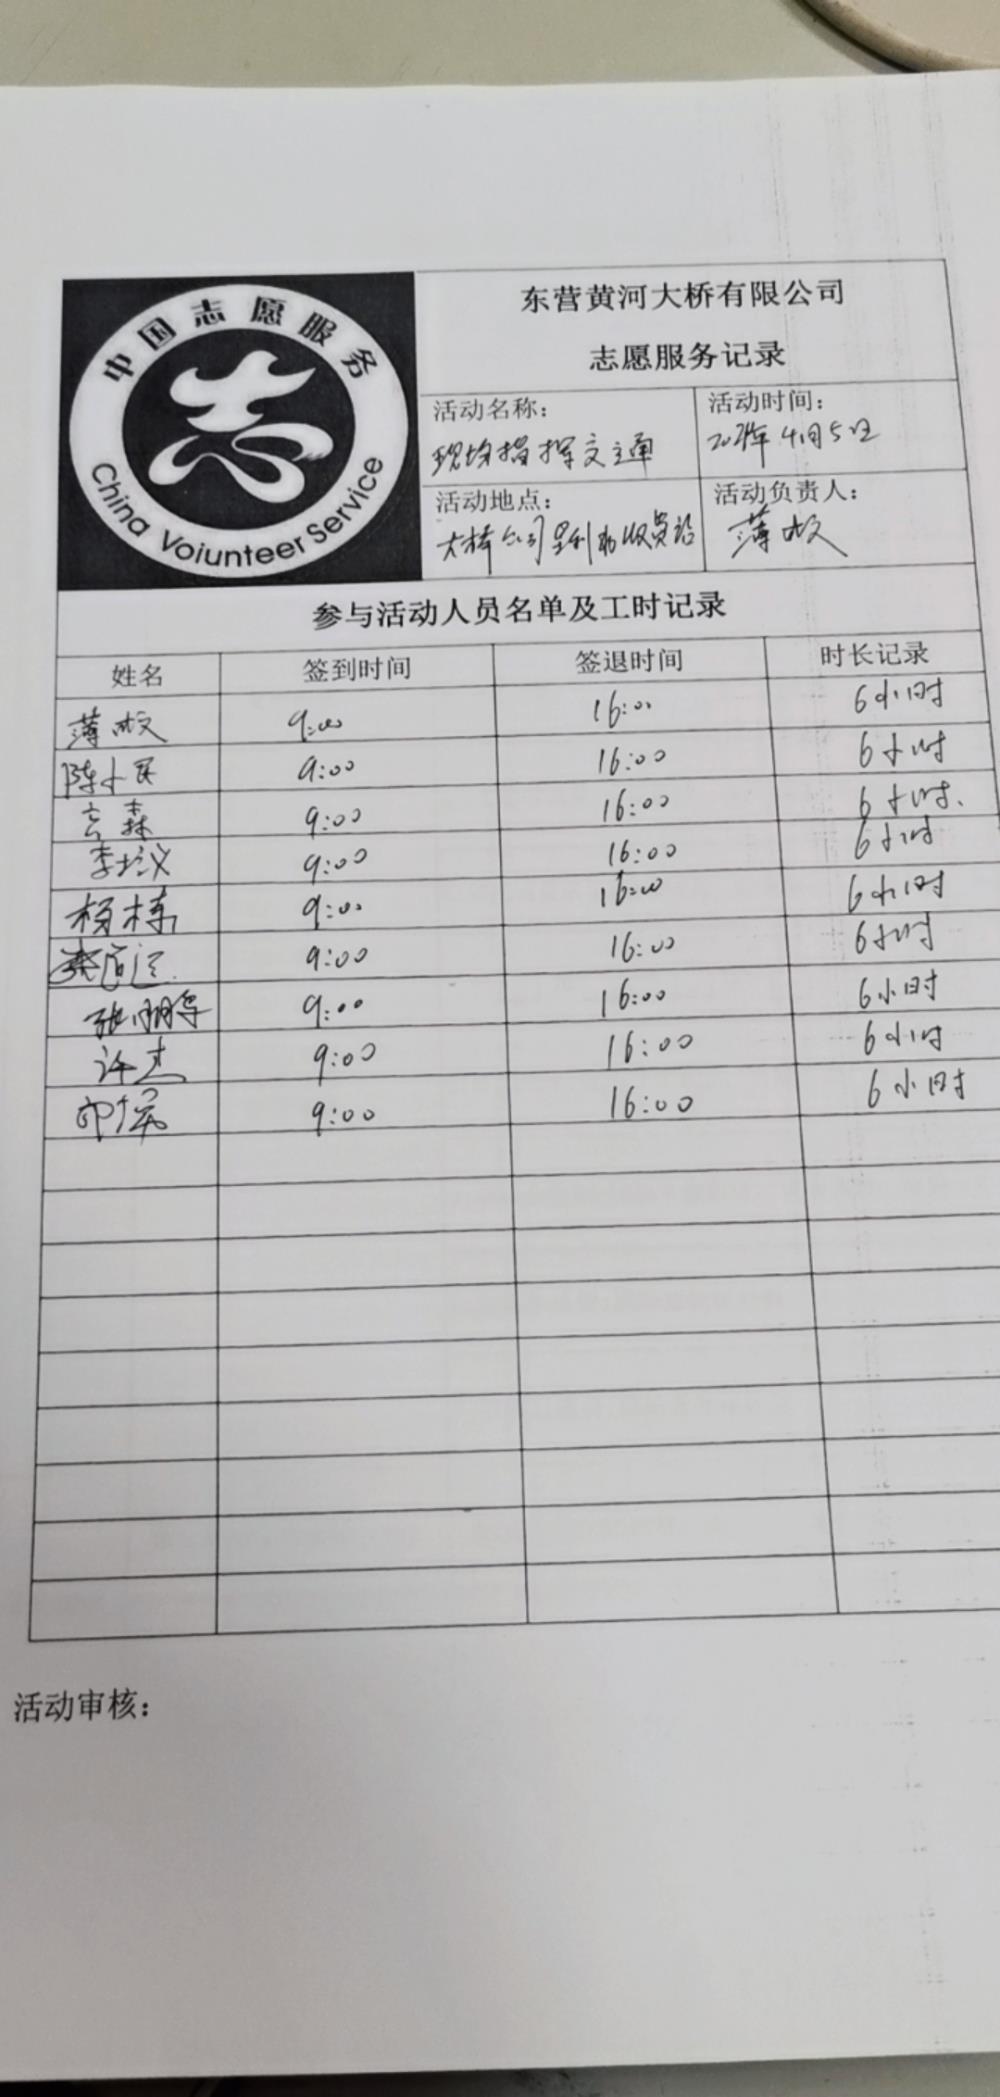 中国志愿服务
China Voiunteer Service
东营黄河大桥有限公司
志愿服务记录
活动名称：
现场指挥交通
活动时间：
4月5日
活动地点：
大桥公司垦利收费站
活动负责人：
薄
参与活动人员名单及工时记录
姓名 签到时间 签退时间 时长记录
薄 9:00 16:00 6小时
陈小民 9:00 16:00 6小时
森 9:00 16:00 6小时.
李 9:00 16:00 6小时
杨栋 9:00 16:00 6小时
9:00 16:00 6小时
张鹏 9:00 16:00 6小时
许杰 9:00 16:00 6小时
9:00 16:00 6小时
活动审核：